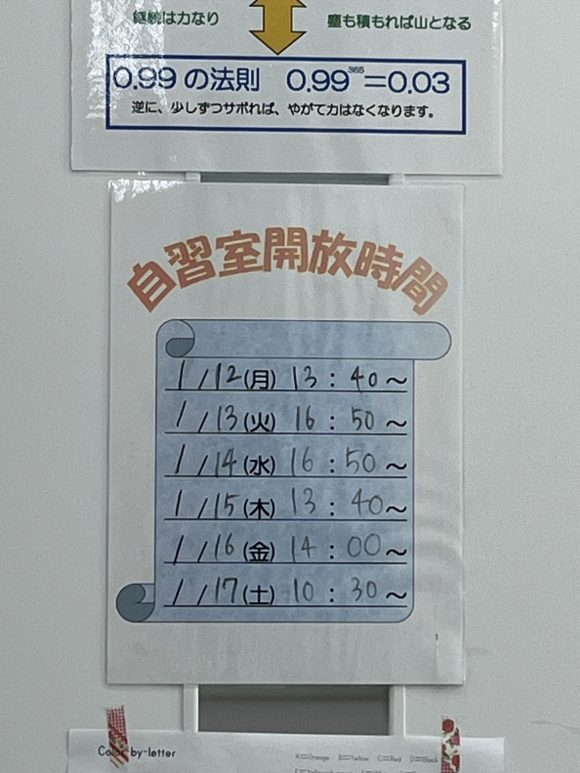 継続は力なり
塵も積もれば山となる
0.99の法則 0.99³⁶⁵=0.03
逆に、少しずつサボれば、やがて力はなくなります。
自習室開放時間
1/12(月) 13:40～
1/13(火) 16:50～
1/14(水) 16:50～
1/15(木) 13:40～
1/16(金) 14:00～
1/17(土) 10:30～
Color-by-letter
A=Orange B=Yellow C=Red D=Black